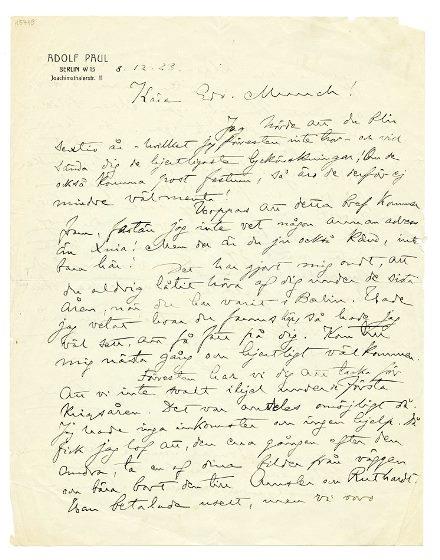 15719
ADOLF PAUL
BERLIN W 15
Joachimsthalerstr. 11
8. 12. 23
Käre Edv. Munch!
Jag hörde att du blir
sextio år - hvilket jag förresten inte tror - och vill
sända dig de hjertligaste lyckönskningar! Om de
också komma post festum, så äro de derför ej
mindre välmenta!
Hoppas att detta bref kommer
fram, fastän jag inte vet någon annan adress
än Xnia! Men der är du ju också känd, inte
bara här!
Det har gjort mig ondt, att
du aldrig låtit höra af dig under de sista
åren, när du har varit i Berlin. Hade
jag vetat hvar du fanns så hade jag
väl sett, att få fatt på dig. Kom till
mig nästa gång och hjertligt välkommen.
Förresten har vi dig att tacka för
att vi inte svalt ihjäl under de första
krigsåren. Det var alldeles omöjligt då.
Jag hade inga inkomster och ingen hjelp. Så
fick jag lof att, den ena gången efter den
andra, ta en af dina bilder från väggen
och bära bort den till Amsler och Ruthardt.
Han betalade uselt, men vi